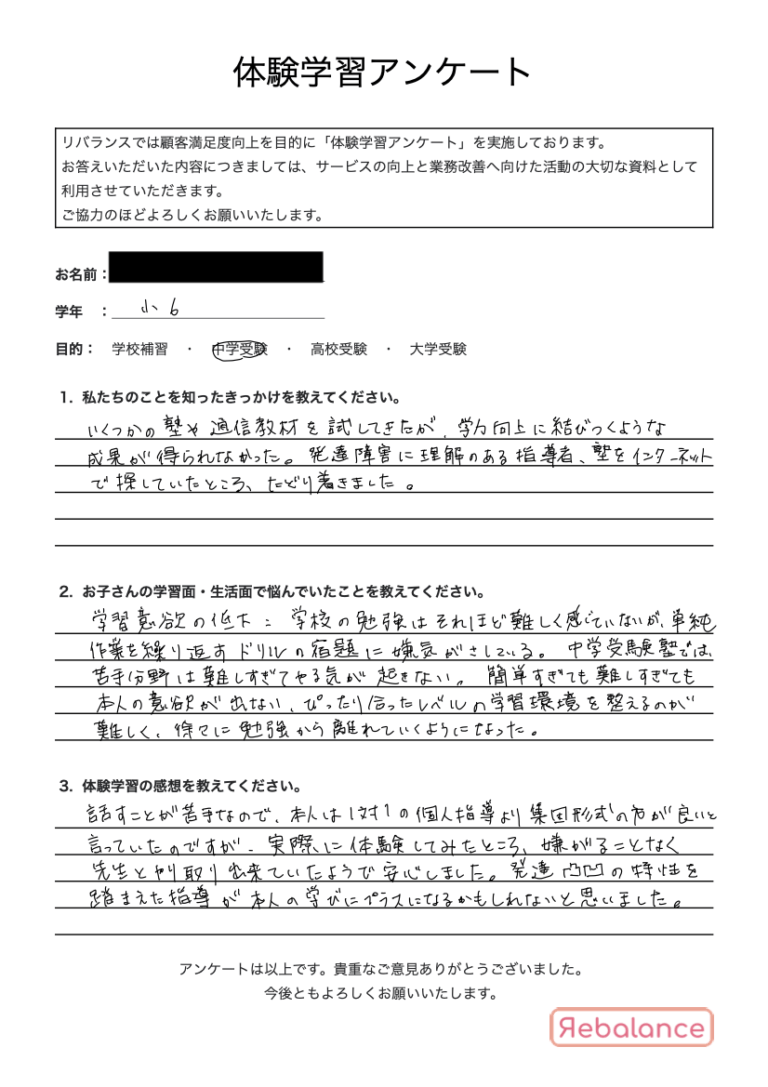 体験学習アンケート
リバランスでは顧客満足度向上を目的に「体験学習アンケート」を実施しております。
お答えいただいた内容につきましては、サービスの向上と業務改善へ向けた活動の大切な資料として
利用させていただきます。
ご協力のほどよろしくお願いいたします。
お名前：
学年　：小6
目的：　学校補習　・　中学受験　・　高校受験　・　大学受験
1. 私たちのことを知ったきっかけを教えてください。
いくつかの塾や通信教材を試してきたが、学力向上に結びつくような
成果が得られなかった。発達障害に理解のある指導者、塾をインターネット
で探していたところ、たどり着きました。
2. お子さんの学習面・生活面で悩んでいたことを教えてください。
学習意欲の低下：学校の勉強はそれほど難しく感じていないが、単純
作業を繰り返すドリルの宿題に嫌気がさしている。中学受験塾では、
苦手分野は難しすぎてやる気が起きない。簡単すぎても難しすぎても
本人の意欲が出ない、ぴったり合ったレベルの学習環境を整えるのが
難しく、徐々に勉強から離れていくようになった。
3. 体験学習の感想を教えてください。
話すことが苦手なので、本人は1対1の個人指導より集団形式の方が良いと
言っていたのですが、実際に体験してみたところ、嫌がることなく
先生とやり取り出来ていたようで安心しました。発達凸凹の特性を
踏まえた指導が本人の学びにプラスになるかもしれないと思いました。
アンケートは以上です。貴重なご意見ありがとうございました。
今後ともよろしくお願いいたします。
Rebalance